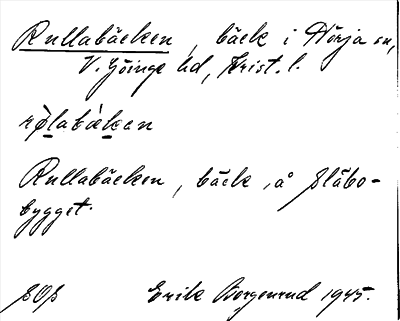 Rullabäcken, bäck i Hörja sn,
V. Göinge hd, Krist. l.
rølabäken
Rullabäcken, bäck, å Slåbo-
bygget.
SOB Erik Borgenrud 1945.